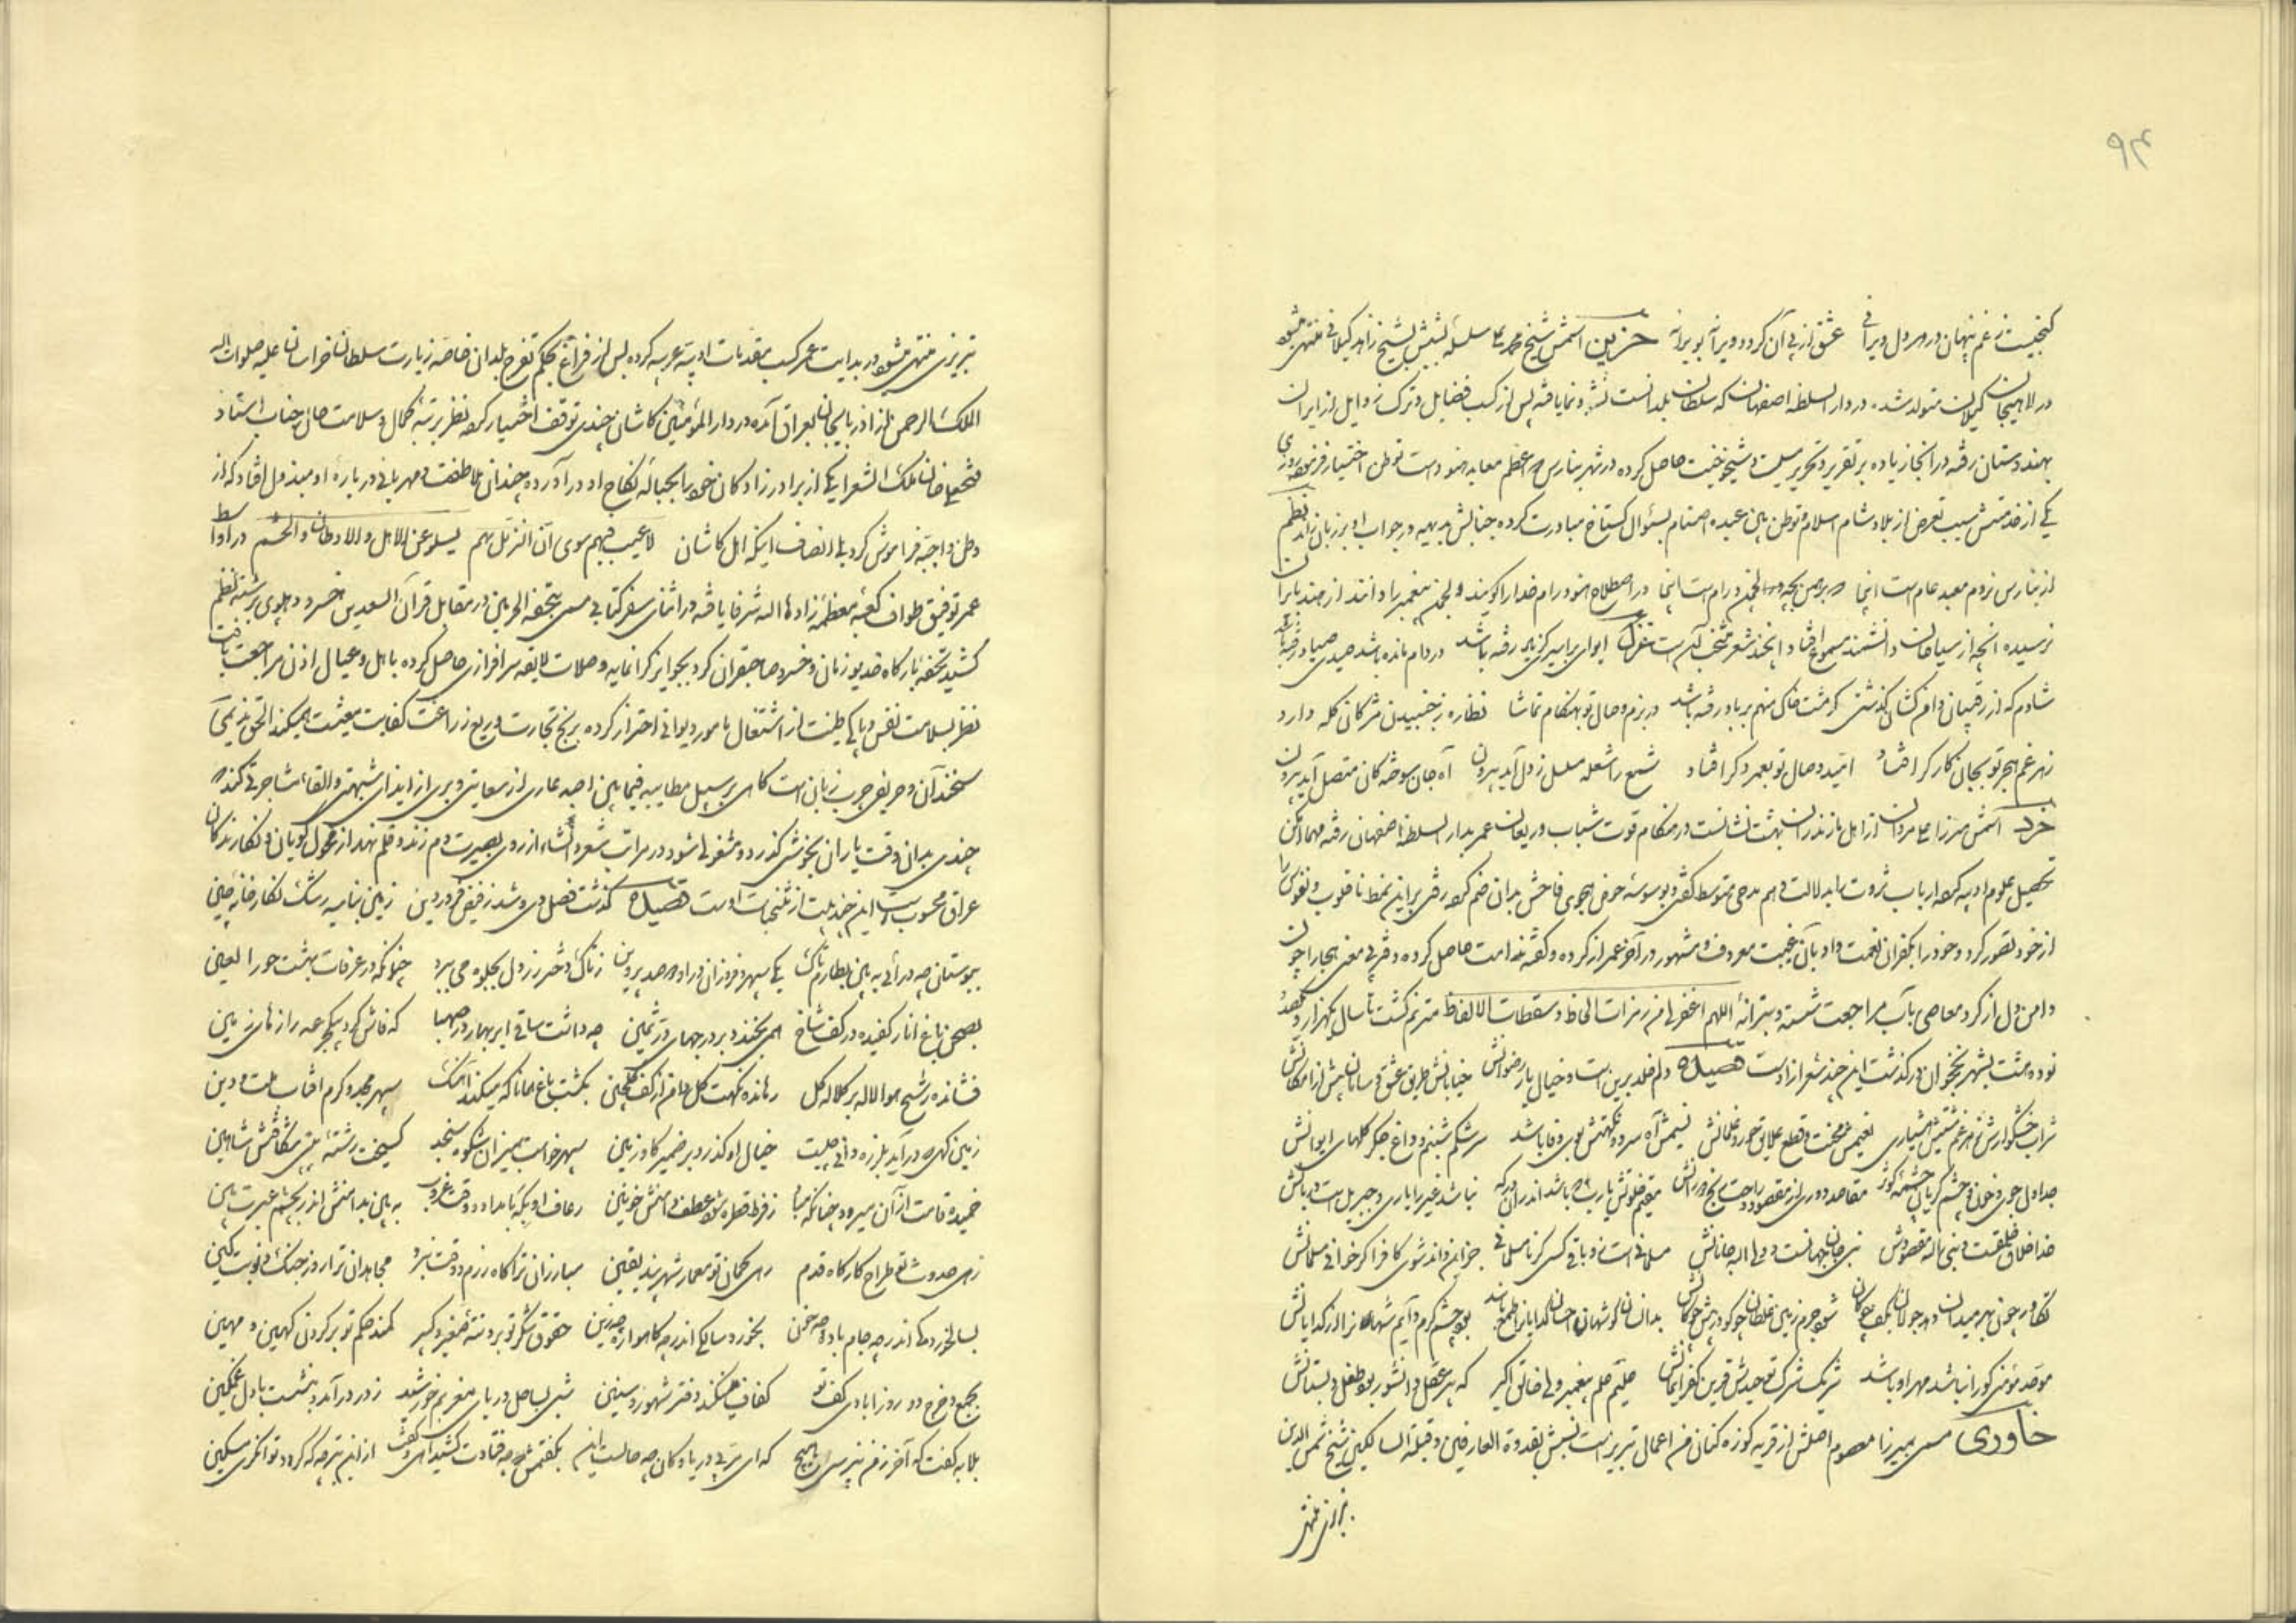 ۹۴
گنجیست ز غم پنهان در هر دل ویرانی عشق از پی آن گردد ویرانه بویرانه حزین اسمش شیخ محمد علی سلسله نسبش بشیخ زاهد گیلانی منتهی میشود
در لاهیجان گیلان متولد شده در دار السلطنه اصفهان که سلطان بلدانست نشو و نما یافته پس از کسب فضایل و ترک رذایل از ایران
بهندوستان رفته در آنجا زیاده بر تقریر و تحریر سلیت و شیخوخیت حاصل کرده در شهر بنارس که اعظم معابد هنود است توطن اختیار فرمود روزی
یکی از خدمتش سبب تعرض از بلاد شام اسلام و توطن بین عبده اصنام بسؤال گستاخ مبادرت کرده جنابش بدیهه در جواب او بر زبان راند نظم
از بنارس نروم معبد عام است اینجا هر برهمن بچه لچمن و رام است اینجا در اصطلاح هنود رام خدا را گویند و لچمن پیغمبر را دانند از هند بایران
نرسیده آنچه از سیاحان دانشمند مسموع افتاد این چند شعر منتخب آن است غزل ای وای بر اسیری کز یاد رفته باشد در دام مانده باشد صید صیاد رفته باشد
شادم که از رقیبان دامن کشان گذشتی گو مشت خاک ما هم بر باد رفته باشد در بزم وصال تو بهنگام تماشا نظاره ز جنبیدن مژگان گله دارد
زهر غم هجر تو بجان کارگر افتاد امید وصال تو بعمر دگر افتاد شمع را شعله مسلسل ز دل آید بیرون آه جان سوختگان متصل آید بیرون
خرد اسمش میرزا علی مردان از اهل مازندران بهشت نشانست در هنگام قوت شباب و ریعان عمر بدار السلطنه اصفهان رفته مهما امکن
تحصیل علوم ادبیه کرده ارباب ثروت را بدلالت وهم مدحی متوسط گفتی و بوسوسه حرص هجوی فاحش بدان ضم کرده رفتی بر این نمط قلوب و نفوس را
از خود نفور کرد و خود را بکفران نعمت و ادبار غیبت معروف و مشهور در آخر عمر از کرده و گفته ندامت حاصل کرده دفتر بی معنی هجا را چون
دامن دل از گرد معاصی بآب مراجعت شسته و بترانه اللهم اغفر لی من رمزات الحاظ و سقطات الالفاظ مترنم گشت تا سال یکهزار و یکصد و
نود و هشت بشهر نخجوان در گذشت این چند شعر از اوست قصیده دلم خلد برین است و خیال یار رضوانش خیابانش طریق عشق و سامان بیش از امکانش
شراب خوشگوارش زهر غم مستیش هشیاری نعیمش محنت و قطع علایق حور و غلمانش نسیمش آه سرد و نکهتش بوی وفا باشد سرشکم شبنم و داغ جگر گلهای الوانش
جداول جوی خون و چشم گریان چشمه کوثر مقاصد دوری از مقصود و راحت رنج دورانش مقیم خلوتش یارب که باشد اندر آن درگه نباشد غیر را یاری و جبریل است دربانش
خدا خلاق خلقت و نبی ماله مقصودش نبی جان جهانست و ولی الله جانانش مسلمانی است نه باقی کسی کز نامسلمانی جز این داند شوی کافر اگر خوانی مسلمانش
تکاور چون بهر میدان دهد جولان بکف چوگان شود جرم زمین غلطان چو گو در پیش چوگانش بدانسان گوشهان احسان گدایان را طمع باشد بود چشم کرم دایم شهان را از گدایانش
موحد مؤمنی کو را نباشد مهر او باشد شریک شرک توحیدش قرین کفر ایمانش علیم علم پیغمبر ولی خالق اکبر که پیر عقل دانشور بود طفل دبستانش
خاوری مسمی میرزا معصوم اصلش از قریه کوزه کنان من اعمال تبریز است نسبش بقدوة العارفین و قبلة السالکین شیخ شمس الدین
تبریزی منتهی
تبریزی منتهی میشود در بدایت عمر کسب مقدمات ادبیه عربیه کرده پس از فراغ بحکم تفرج بلدان خاصه زیارت سلطان خراسان علیه صلوات الله
الملک الرحمن از آذربایجان بعراق آمده در دار المؤمنین کاشان چندی توقف اختیار کرده نظر برتبه کمال و سلامت حال جناب استاد
فتحعلیخان ملک الشعرا یکی از برادر زادگان خود را بحباله نکاح او در آورده چندان ملاطفت و مهربانی در باره او مبذول افتاد که از
وطن و احبه فراموش کرد بلی انصاف اینکه اهل کاشان لا عیب فیهم سوی ان النزیل بهم یسلو عن الاهل و الاوطان و الحشم در اواسط
عمر توفیق طواف کعبه معظمه زادها الله شرفا یافته در اثنای سفر کتابی مسمی بتحفة الحرمین در مقابل قران السعدین خسرو دهلوی برشته نظم
کشید تحفه بارگاه خدیو زمان و خسرو صاحبقران کرد بجوایز گرانمایه و صلات لایقه سرافرازی حاصل کرده باهل و عیال اذن مراجعت یافت
نظر بسلامت نفس و پاکی طینت از اشتغال بامور دیوانی احتراز کرده بربح تجارت و ریع زراعت کفایت معیشت میکند الحق ندیمی
سخندان و حریفی چرب زبان است گاهی بر سبیل مطایبه فیما بین احبه عاری از سعایتی و بری از ایذای شبهتی و القاء مشاجرتی کند که
چندی بدان وقت یاران بخوشی گذرد و مشغولی شود در مراتب شعر و انشاء از روی بصیرت دم زند و قلم نهد از فحول گویان و نگارندگان
عراق محسوب است این چند بیت از نتیجات اوست قصیده گذشت فصل دی و شد ز فیض فروردین زمین بنامیه رشک نگارخانه چین
ببوستان چه درآئی به بین بطارم تاک یکی سپهر و فروزان در او دو صد پروین ز تاک دختر رز دل بجلوه می ببرد چنانکه در غرفات بهشت حور العین
بصحن باغ انار کفیده در کف شاخ همی بخندد بر درجهای در ثمین چه داشت ساقی ابر بهار در صهبا که فاش کرد بیک جرعه رازهای زمین
فشانده رشح هوا لاله بر کلاله گل رهانده نکهت گل دامن از کف گلچین بگشت باغ همانا که میکند آهنگ سپهر مجد و کرم آفتاب ملت و دین
زمین که در آید بلرزه دانی چیست خیال او گذرد بر ضمیر گاو زمین سپهر خواست بمیزان شکوه سنجد گسیخت رشته
خمیده قامت از آن میرود ز فرط قطره شود عطف دامنش خونین رعاف او بگه بامداد و وقت غروب به بین بدامنش اندر بچشم عبرت بین
زهی حدوث تو طراح کارگاه قدم رهی گمان تو معمار شهربند یقین مبارزان ترا گاه رزم و وقت نبرد مجاهدان ترا روز جنگ و نوبت کین
بسالخورده اندر چه جام باده چه خون بخرد سالگی اندر چه گاهواره چه زین حقوق شکر تو بر ذمه صغیر و کبیر کمند حکم تو بر گردن کهین و مهین
بجمع و خرج دو روز ایادی کف تو کفاف می نکند دفتر شهور و سنین شبی بساحل دریای مغربم خورشید ز در در آمد و بنشست با دل غمگین
بلابه گفت که آخر ز من نپرسی هیچ که ای بریده ز یاران چه حالست این بگفتمش چه فتادت کشید آهی و گفت از این بتر چه که گردد توانگری مسکین